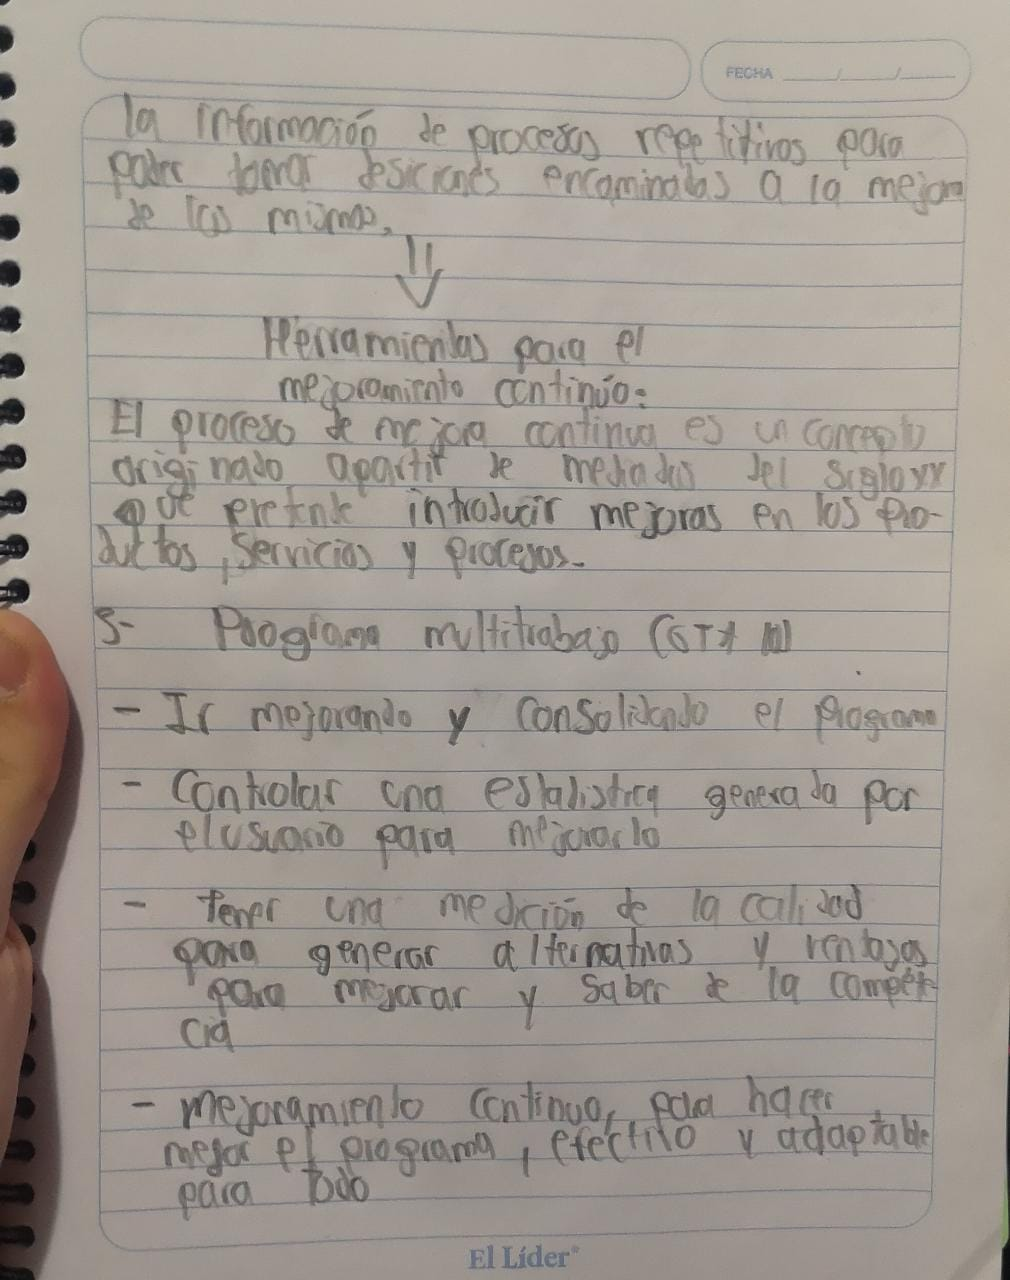 FECHA
la información de procesos repetitivos para
poder tomar desiciones encaminadas a la mejora
de los mismos.
Herramientas para el
mejoramiento continúo:
El proceso de mejora continua es un concepto
originado apartir de mediados del siglo xx
que pretende introducir mejoras en los pro-
ductos, servicios y procesos.
5- Programa multitrabajo
- Ir mejorando y consolidando el programa
- Controlar una estalistica generada por
el usuario para mejorarlo
- tener una medición de la calidad
para generar alternativas y ventajas
para mejorar y saber de la compete
cia
- mejoramiento continuo, para hacer
mejor el programa, efectivo y adaptable
para todo
El Líder®